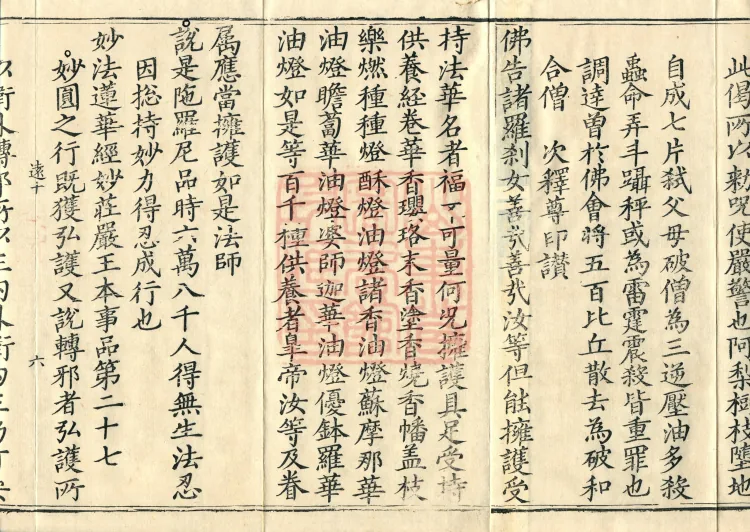 此偈所以敕呪使嚴警也阿梨樹枝墮地
自成七片弒父母破僧為三逆壓油多殺
蟲命弄斗躡秤或為雷霆震殺皆重罪也
調逹曾於佛會將五百比丘散去為破和
合僧　次釋尊印讃
佛告諸羅刹女善㦲善㦲汝等但能擁護受
持法華名者福不可量何況擁護具足受持
供養経卷華香瓔珞末香塗香燒香幡盖枝
樂燃種種燈酥燈油燈諸香油燈蘇摩那華
油燈瞻蔔華油燈婆師迦華油燈優鉢羅華
油燈如是等百千種供養者臯帝汝等及眷
属應當擁護如是法師
說是陁羅尼品時六萬八千人得無生法忍
因惣持妙力得忍成行也
妙法蓮華經妙莊嚴王本事品第二十七
妙圓之行既獲弘護又說轉邪者弘護所
遠十
六